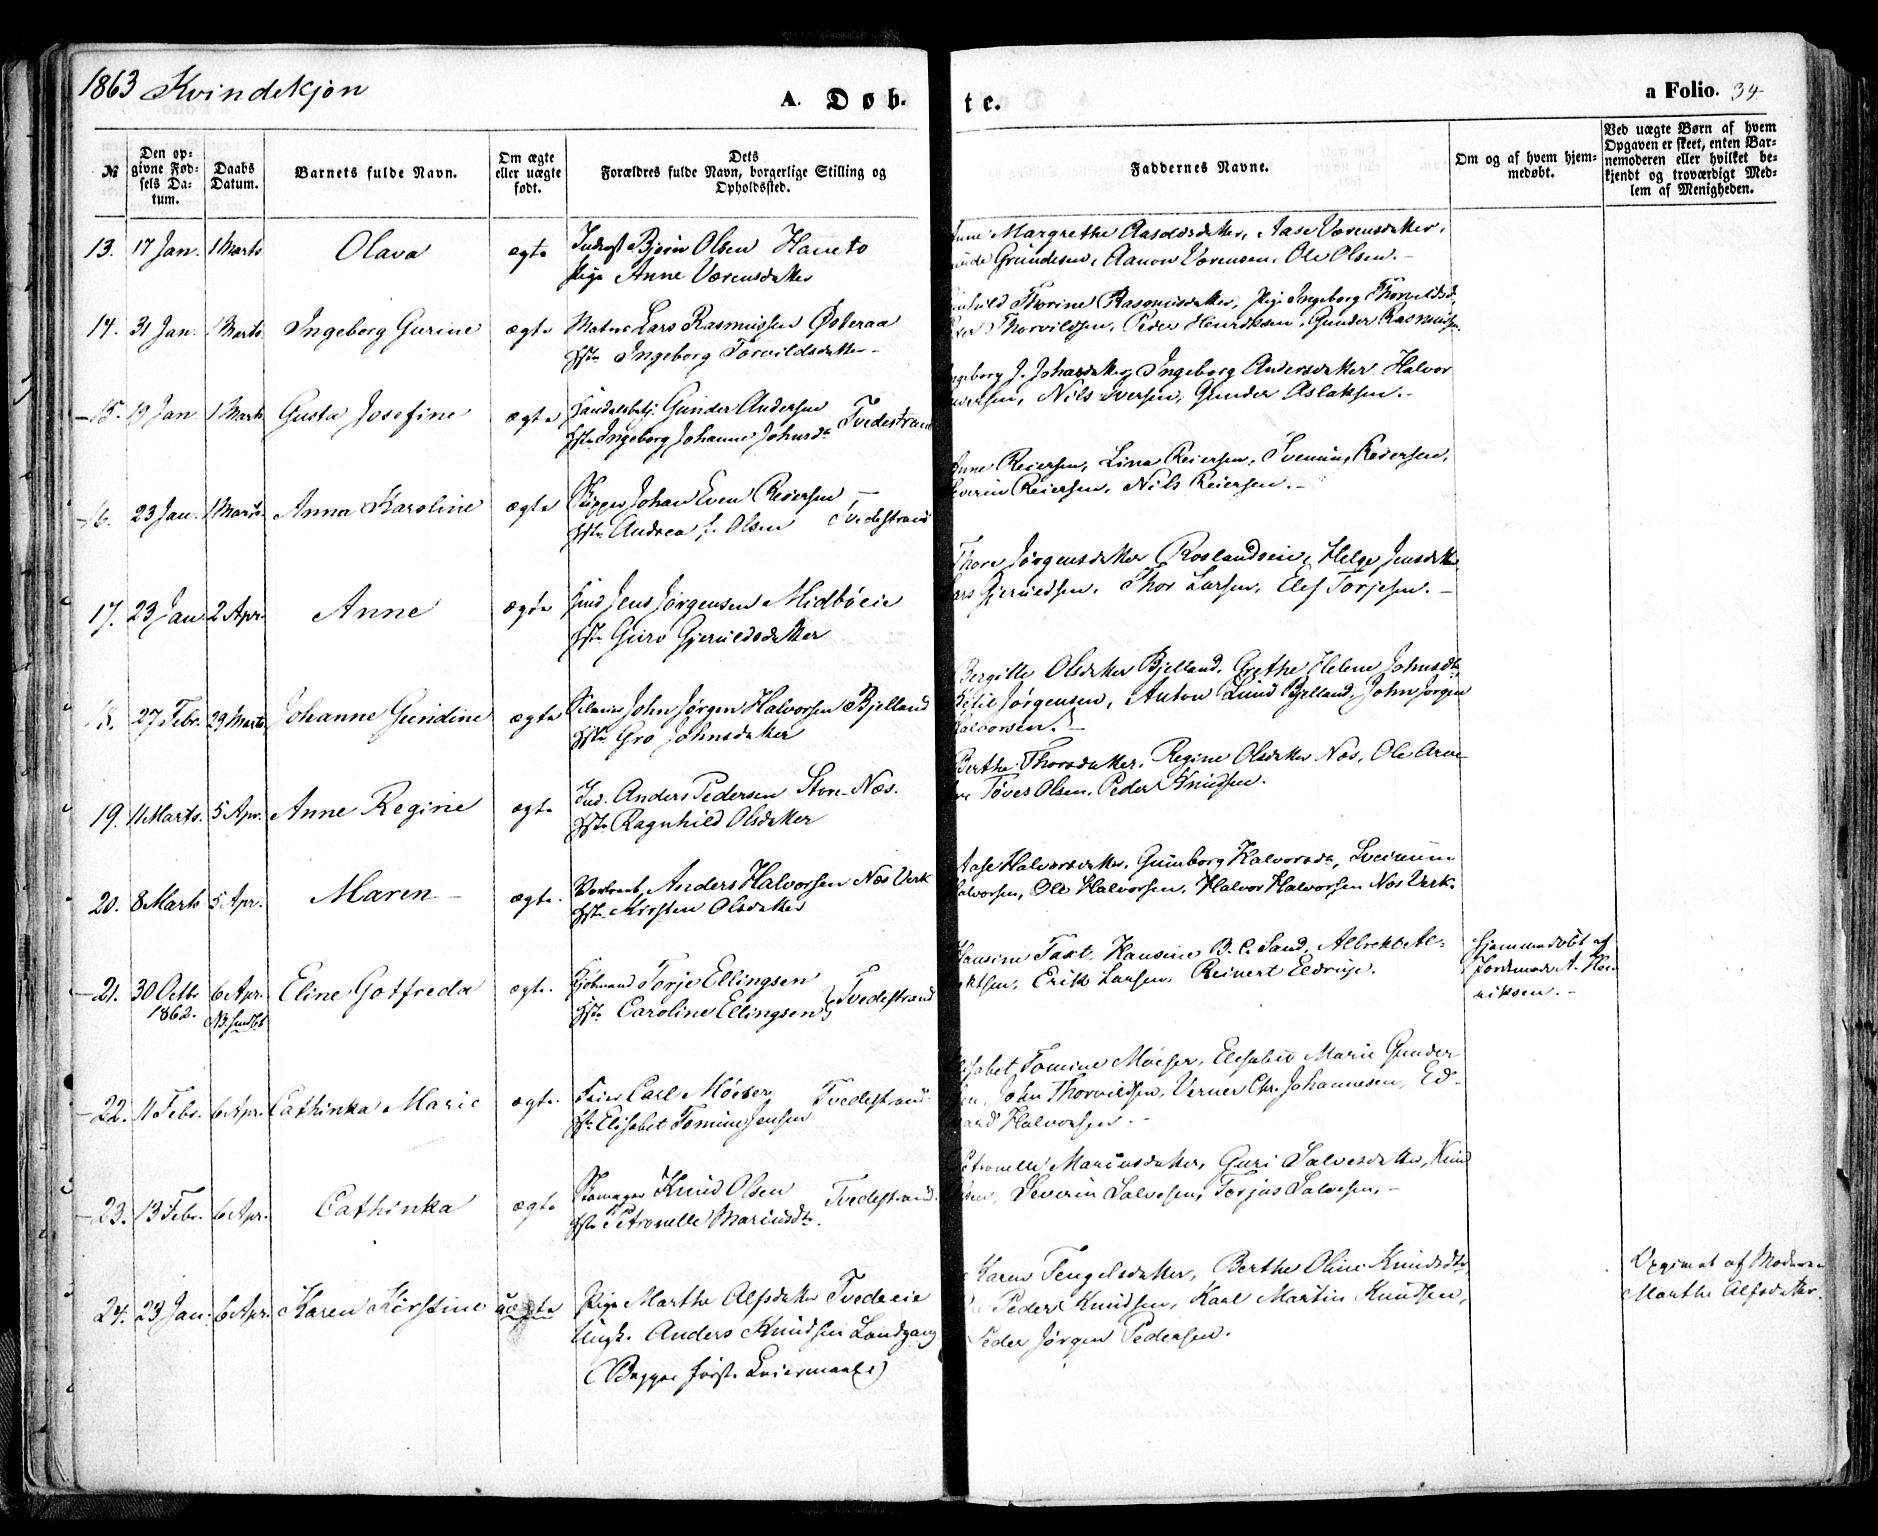 1863 Kvindekjøn
A. Døb-
te.
a Folio. 34
№
Den op-
givne Fød-
sels Da-
tum.
Daabs
Datum.
Barnets fulde Navn.
Om ægte
eller uægte
født.
Dets
Forældres fulde Navn, borgerlige Stilling og
Opholdssted.
Faddernes Navne.
Om og af hvem hjem-
medøbt.
Ved uægte Børn af hvem
Opgaven er skeet, enten Bar-
nemoderen eller hvilket be-
kjendt og troværdigt Med-
lem af Menigheden.
13. 17 Jan. 1 Marts Olava ægte Bjørn Olsen
Pige Anne Værensdatter
Margrethe Aasoldsdatter, Aase Værensdatter,
Grundesen, Aanon Værensen, Ole Olsen. -
14. 31 Jan. 1 Marts Ingeborg Gurine ægte Matros Lars Rasmussen Østeraa
Hst. Ingeborg Torvildsdatter -
Thorine Rasmusdatter, Pige Ingeborg Thorvildsd.
Thorvildsen, Peder Henriksen, Gunder Rasmussen.
15. 19 Jan 1 Marts Gusta Josefine ægte Handelsbetj. Gunder Andersen
Hst. Ingeborg Johanne Johnsdr Tvedestrand
J. Johnsdatter, Ingeborg Andersdatter, Halvor
Iversen, Nils Iversen, Gunder Aslaksen. -
16. 23 Jan. 1 Marts Anna Karoline ægte Skipper Johan Even Reiersen -
Hst. Andrea f. Olsen Tvedestrand
Anne Reiersen, Lina Reiersen, Reiersen,
Severin Reiersen, Nils Reiersen. -
17. 23 Jan 2 Apr. Anne ægte Hmd Jens Jørgensen Midbøeie
Hst. Guro Gjeruldsdatter
Thore Jørgensdatter Roslandseie, Helge Jensdatter
Lars Gjeruldsen, Thor Larsen, Elef Torjesen. -
18. 27 Febr. 29 Marts Johanne Gundine ægte John Jørgen Halvorsen Bjelland
Hst. Gro Johnsdatter
Bergitte Olsdatter Bjelland, Grethe Helene Johnsdtr,
Ketil Jørgensen, Anton Lund Bjelland, John Jørgen
Halvorsen. -
19. 11 Marts. 5 Apr. Anne Regine ægte Ind. Anders Pedersen Store-Næs.
Hst. Ragnhild Olsdatter
Berthe Thorsdatter, Regine Olsdatter Næs, Ole Arve-
Tøves Olsen, Peder Knudsen.
20. 8 Marts 5 Apr. Maren - ægte. Anders Halvorsen Næs Verk
Hst. Kirsten Olsdatter
Aase Halvorsdatter, Gunborg Halvorsdr,
Halvorsen, Ole Halvorsen, Halvor Halvorsen Næs Verk.
21. 30 Octbr
1862. 6 Apr.
Eline Gotfreda ægte. Kjøbmand Torje Ellingsen
Hst. Caroline Ellingsen } Tvedestrand
Hansine Taxt, Hansine B. C. Sand, Albrekt Al-
brektsen, Erik Larsen, Reinert Eldrup.
Hjemmedøbt af
Jordemoder A. Hen-
riksen. -
22. 11 Febr. 6 Apr. Cathinka Marie ægte. Carl Møeser Tvedestrand
Hst. Elisabet Tomine Jensen
Elisabet Tomine Møeser, Elisabet Marie Gunder
sen, John Thorvildsen, Verner Chr. Johannesen, Ed-
vard Halvorsen. -
23. 13 Febr. 6 Apr. Cathinka ægte Skomager Knud Olsen Tvedestrand.
Hst. Petronelle Mariusdtr.
Petronelle Mariusdatter, Guri Salvesdatter, Knud
Olsen, Severin Salvesen, Torjus Salvesen, -
24. 23 Jan. 6 Apr. Karen Kirstine uægte Pige Marthe Alfsdatter Tvedeeie
Ungk. Anders Knudsen Landgang
(Begges første Leiermaal)
Karen Tengelsdatter, Berthe Oline Knudsdtr,
Peder Knudsen, Karl Martin Knudsen,
Peder Jørgen Pedersen.
Opgivet af Moderen
Marthe Alfsdatter.